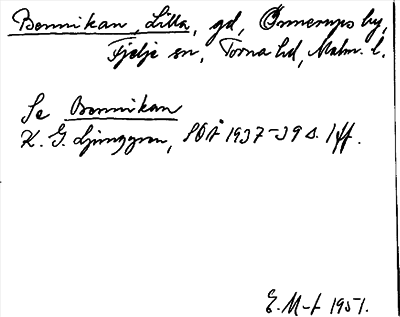 Bennikan, Lilla, gd, Önnerups by,
Fjelie sn, Torna hd, Malm. l.
Se Bennikan
K. G. Ljunggren, SOÅ 1937-39 s. 1 ff.
E. M-t 1951.